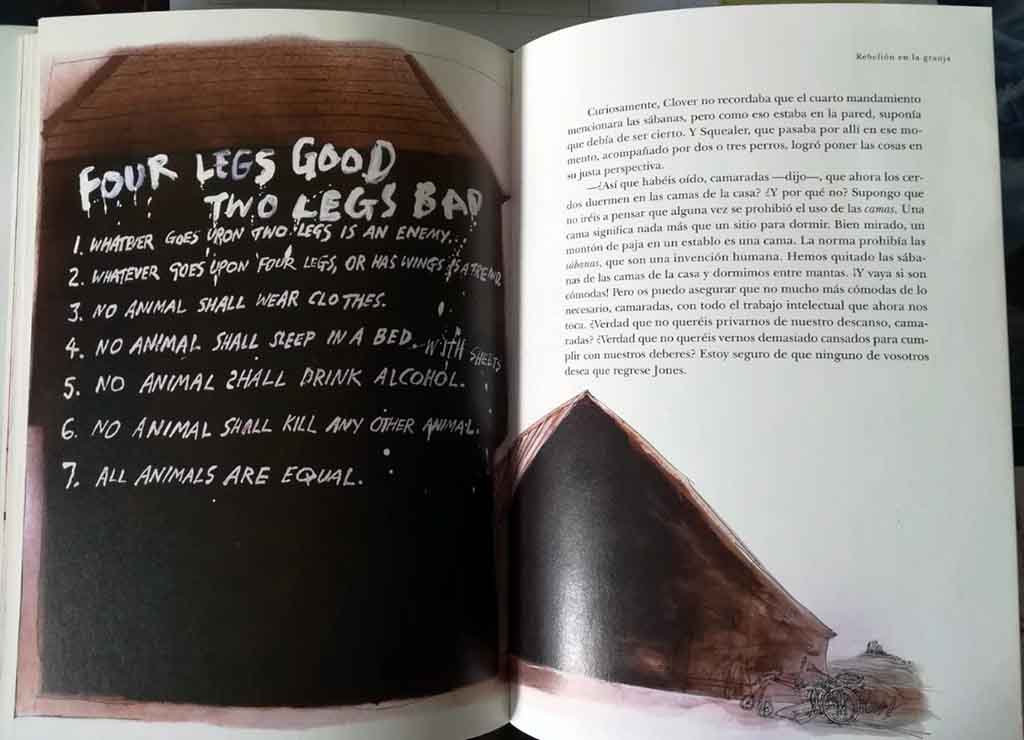 FOUR LEGS GOOD
TWO LEGS BAD
1. WHATEVER GOES UPON TWO LEGS IS AN ENEMY.
2. WHATEVER GOES UPON FOUR LEGS, OR HAS WINGS IS A FRIEND
3. NO ANIMAL SHALL WEAR CLOTHES.
4. NO ANIMAL SHALL SLEEP IN A BED. WITH SHEETS
5. NO ANIMAL SHALL DRINK ALCOHOL.
6. NO ANIMAL SHALL KILL ANY OTHER ANIMAL.
7. ALL ANIMALS ARE EQUAL.
Rebelión en la granja
Curiosamente, Clover no recordaba que el cuarto mandamiento
mencionara las sábanas, pero como eso estaba en la pared, suponía
que debía de ser cierto. Y Squealer, que pasaba por allí en ese mo-
mento, acompañado por dos o tres perros, logró poner las cosas en
su justa perspectiva.
—¿Así que habéis oído, camaradas —dijo—, que ahora los cer-
dos duermen en las camas de la casa? ¿Y por qué no? Supongo que
no iréis a pensar que alguna vez se prohibió el uso de las camas. Una
cama significa nada más que un sitio para dormir. Bien mirado, un
montón de paja en un establo es una cama. La norma prohibía las
sábanas, que son una invención humana. Hemos quitado las sába-
nas de las camas de la casa y dormimos entre mantas. ¡Y vaya si son
cómodas! Pero os puedo asegurar que no mucho más cómodas de lo
necesario, camaradas, con todo el trabajo intelectual que ahora nos
toca. ¿Verdad que no queréis privarnos de nuestro descanso, cama-
radas? ¿Verdad que no queréis vernos demasiado cansados para cum-
plir con nuestros deberes? Estoy seguro de que ninguno de vosotros
desea que regrese Jones.